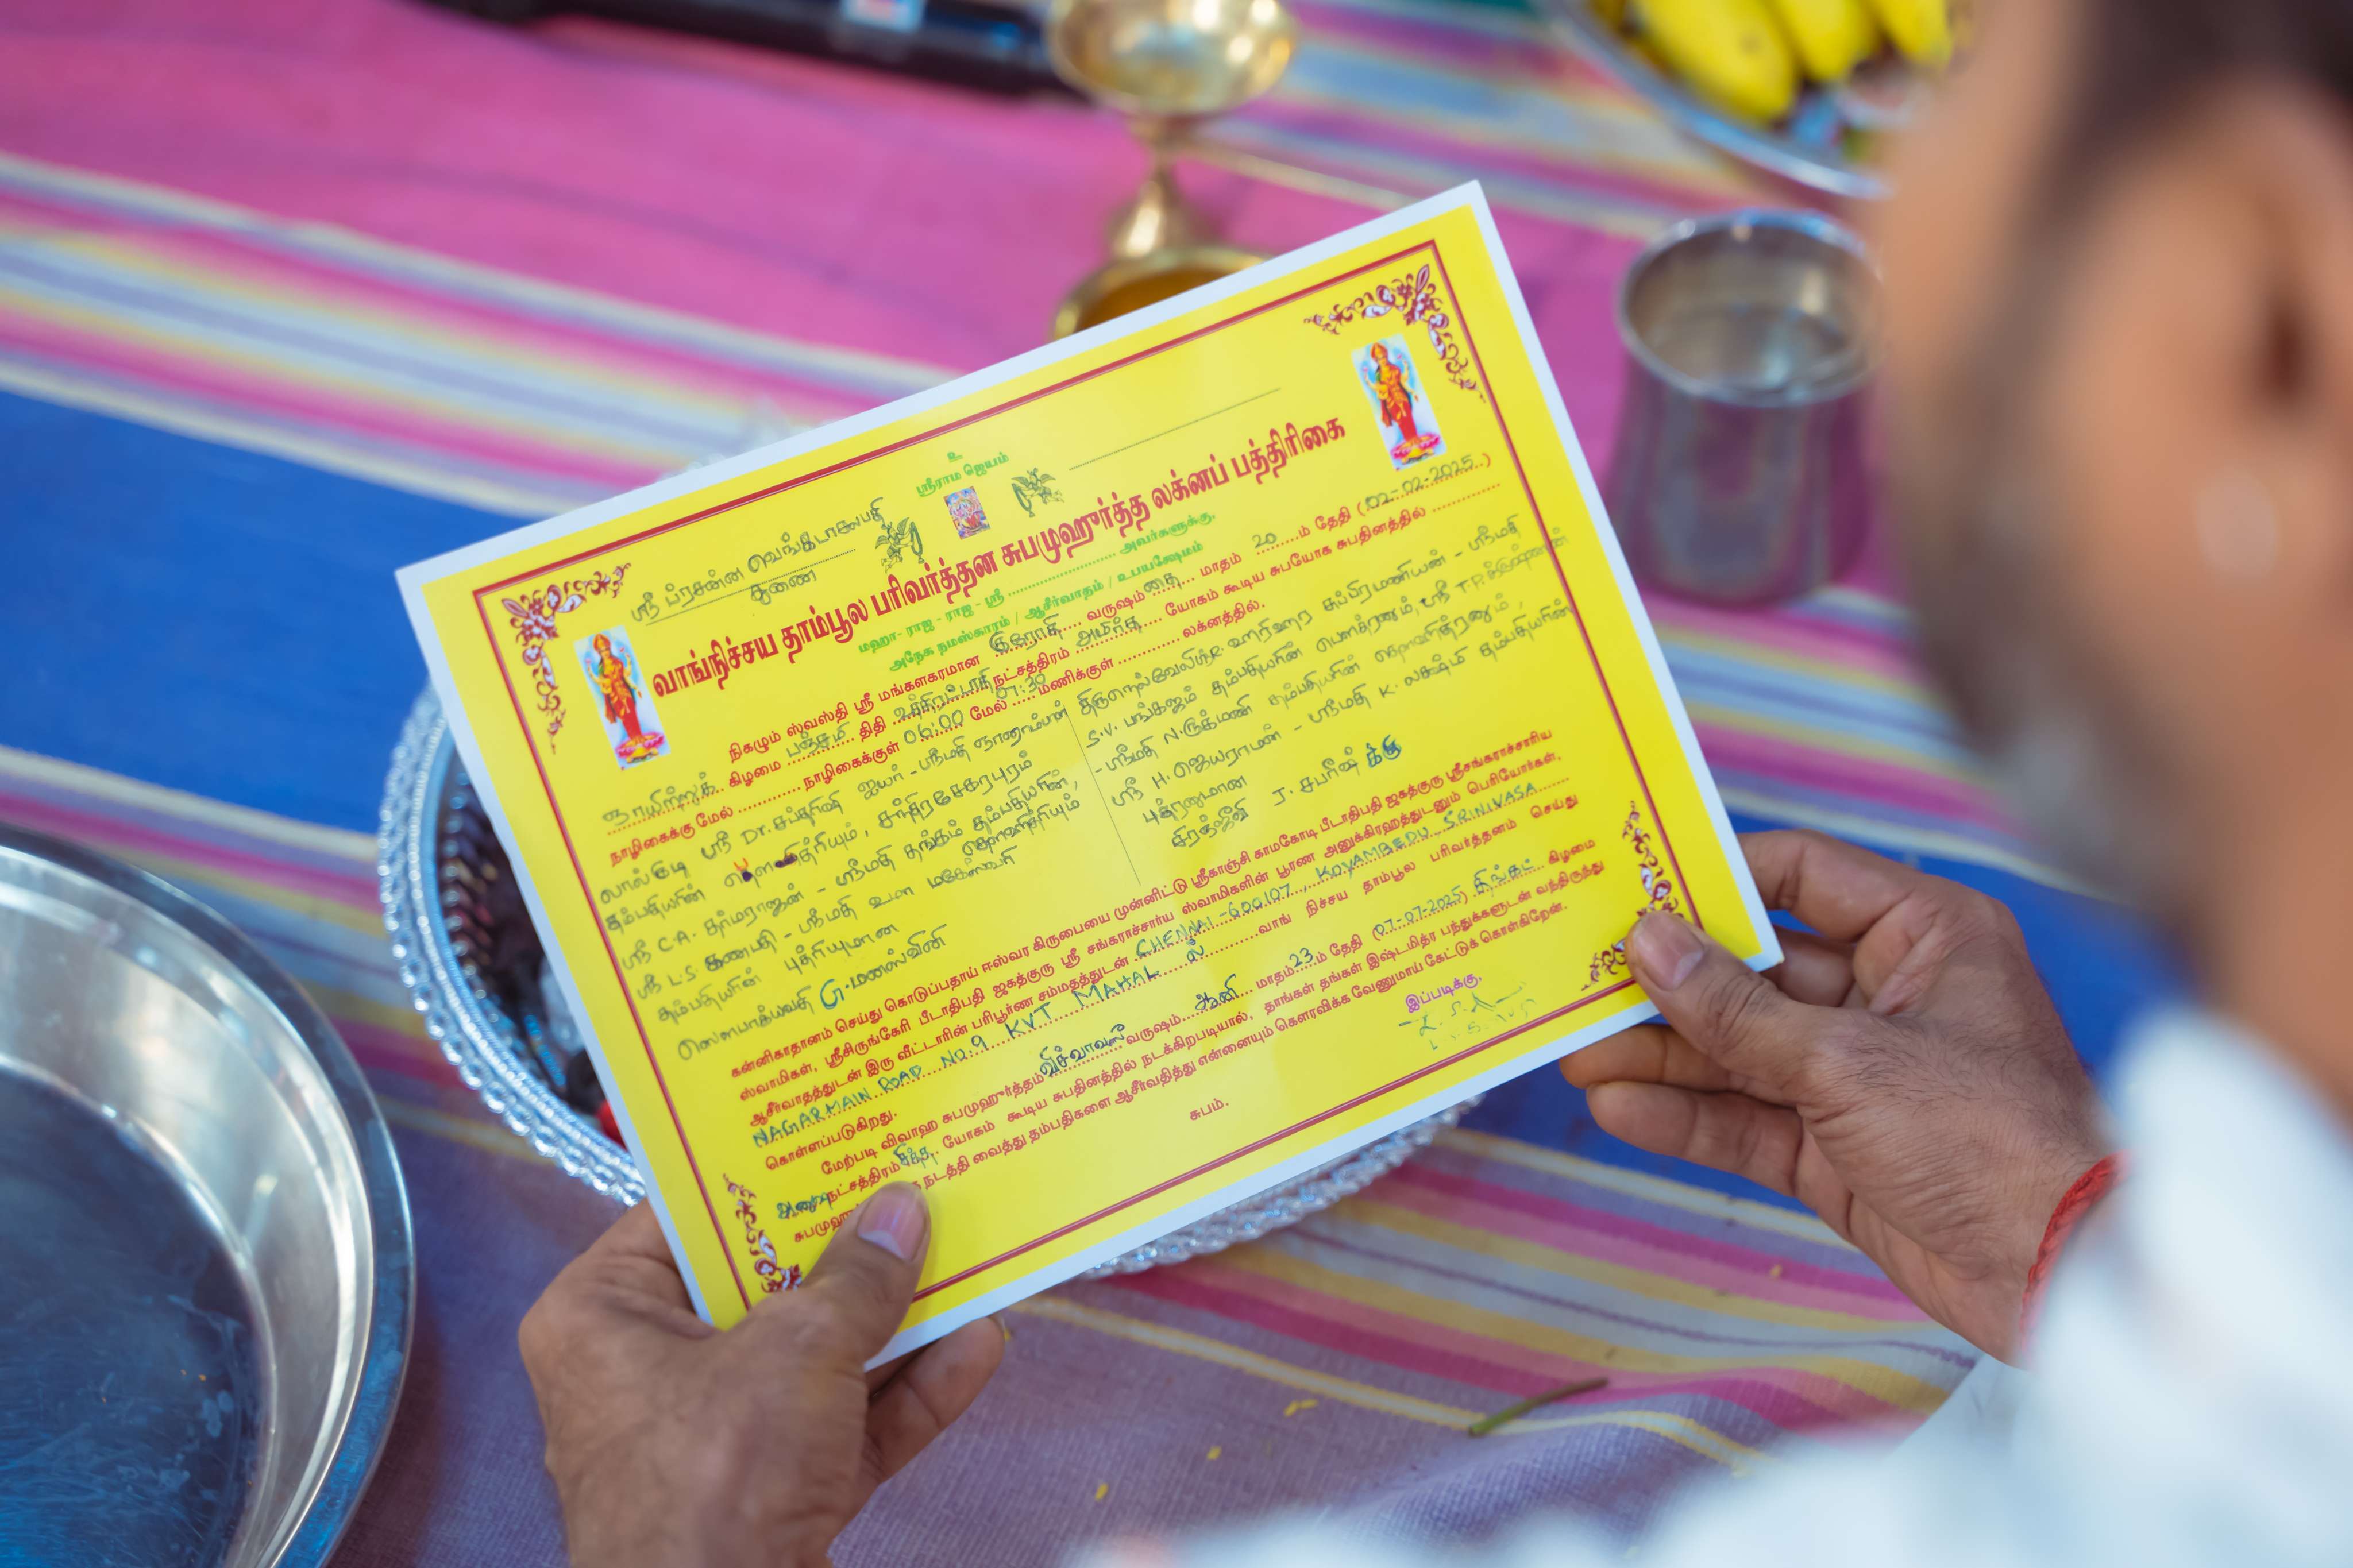 உ
ஸ்ரீராம ஜெயம்
ஸ்ரீ ப்ரசன்ன வெங்கடாசலபதி
துணை
வாங்நிச்சய தாம்பூல பரிவர்த்தன சுபமுஹுர்த்த லக்னப் பத்திரிகை
மஹா - ராஜ - ராஜ - ஸ்ரீ .......... அவர்களுக்கு,
அநேக நமஸ்காரம் / ஆசீர்வாதம் / உபயக்ஷேமம்
நிகழும் ஸ்வஸ்தி ஸ்ரீ மங்களகரமான குரோதி வருஷம் தை மாதம் 20 ம் தேதி (02-02-2025)
ஞாயிற்றுக் கிழமை பஞ்சமி திதி உத்திரட்டாதி நட்சத்திரம் அமிர்த யோகம் கூடிய சுபயோக சுபதினத்தில்
நாழிகைக்கு மேல் .......... நாழிகைக்குள் 06:00 மேல் 07:30 மணிக்குள் .......... லக்னத்தில்.
லால்குடி ஸ்ரீ Dr. சப்தரிஷி ஐயர் - ஸ்ரீமதி ஞானாம்பாள்
தம்பதியரின்
சந்திரசேகரபுரம்
ஸ்ரீ C.A. தர்மராஜன் - ஸ்ரீமதி தங்கம் தம்பதியரின்,
தௌஹித்ரியும்
ஸ்ரீ L.S. கணபதி - ஸ்ரீமதி உமா மகேஸ்வரி
தம்பதியரின் புத்ரியுமான
ஸௌபாக்யவதி G. மனஸ்வினி
திருநெல்வேலி ஹரிஹர சுப்பிரமணியன் - ஸ்ரீமதி
S.V. பங்கஜம் தம்பதியரின் பௌத்ரனும், ஸ்ரீ T.P.
- ஸ்ரீமதி N. ருக்மணி தம்பதியரின் தௌஹித்ரனும்,
ஸ்ரீ H. ஜெயராமன் - ஸ்ரீமதி K. லக்ஷ்மி தம்பதியரின்
புத்ரனுமான
சிரஞ்ஜீவி J. சபரீஷ் க்கு
கன்னிகாதானம் செய்து கொடுப்பதாய் ஈஸ்வர கிருபையை முன்னிட்டு ஸ்ரீகாஞ்சி காமகோடி பீடாதிபதி ஜகத்குரு ஸ்ரீசங்கராச்சாரிய
ஸ்வாமிகள், ஸ்ரீசிருங்கேரி பீடாதிபதி ஜகத்குரு ஸ்ரீ சங்கராச்சார்ய ஸ்வாமிகளின் பூரண அனுக்கிரஹத்துடனும் பெரியோர்கள்,
ஆசீர்வாதத்துடன் இரு வீட்டாரின் பரிபூர்ண சம்மதத்துடன் CHENNAI-600107, KOYAMBEDU SRINIVASA
NAGAR MAIN ROAD NO:9 KVT MAHAL ல் வாங் நிச்சய தாம்பூல பரிவர்த்தனம் செய்து
கொள்ளப்படுகிறது.
மேற்படி விவாஹ சுபமுஹூர்த்தம் விசுவாவசு வருஷம் ஆனி மாதம் 23 ம் தேதி (07-07-2025) திங்கட் கிழமை
அனுஷ நட்சத்திரம் சித்த யோகம் கூடிய சுபதினத்தில் நடக்கிறபடியால், தாங்கள் தங்கள் இஷ்டமித்ர பந்துக்களுடன் வந்திருந்து
நடத்தி வைத்து தம்பதிகளை ஆசீர்வதித்து என்னையும் கௌரவிக்க வேணுமாய் கேட்டுக் கொள்கிறேன்.
சுபம்.
இப்படிக்கு,